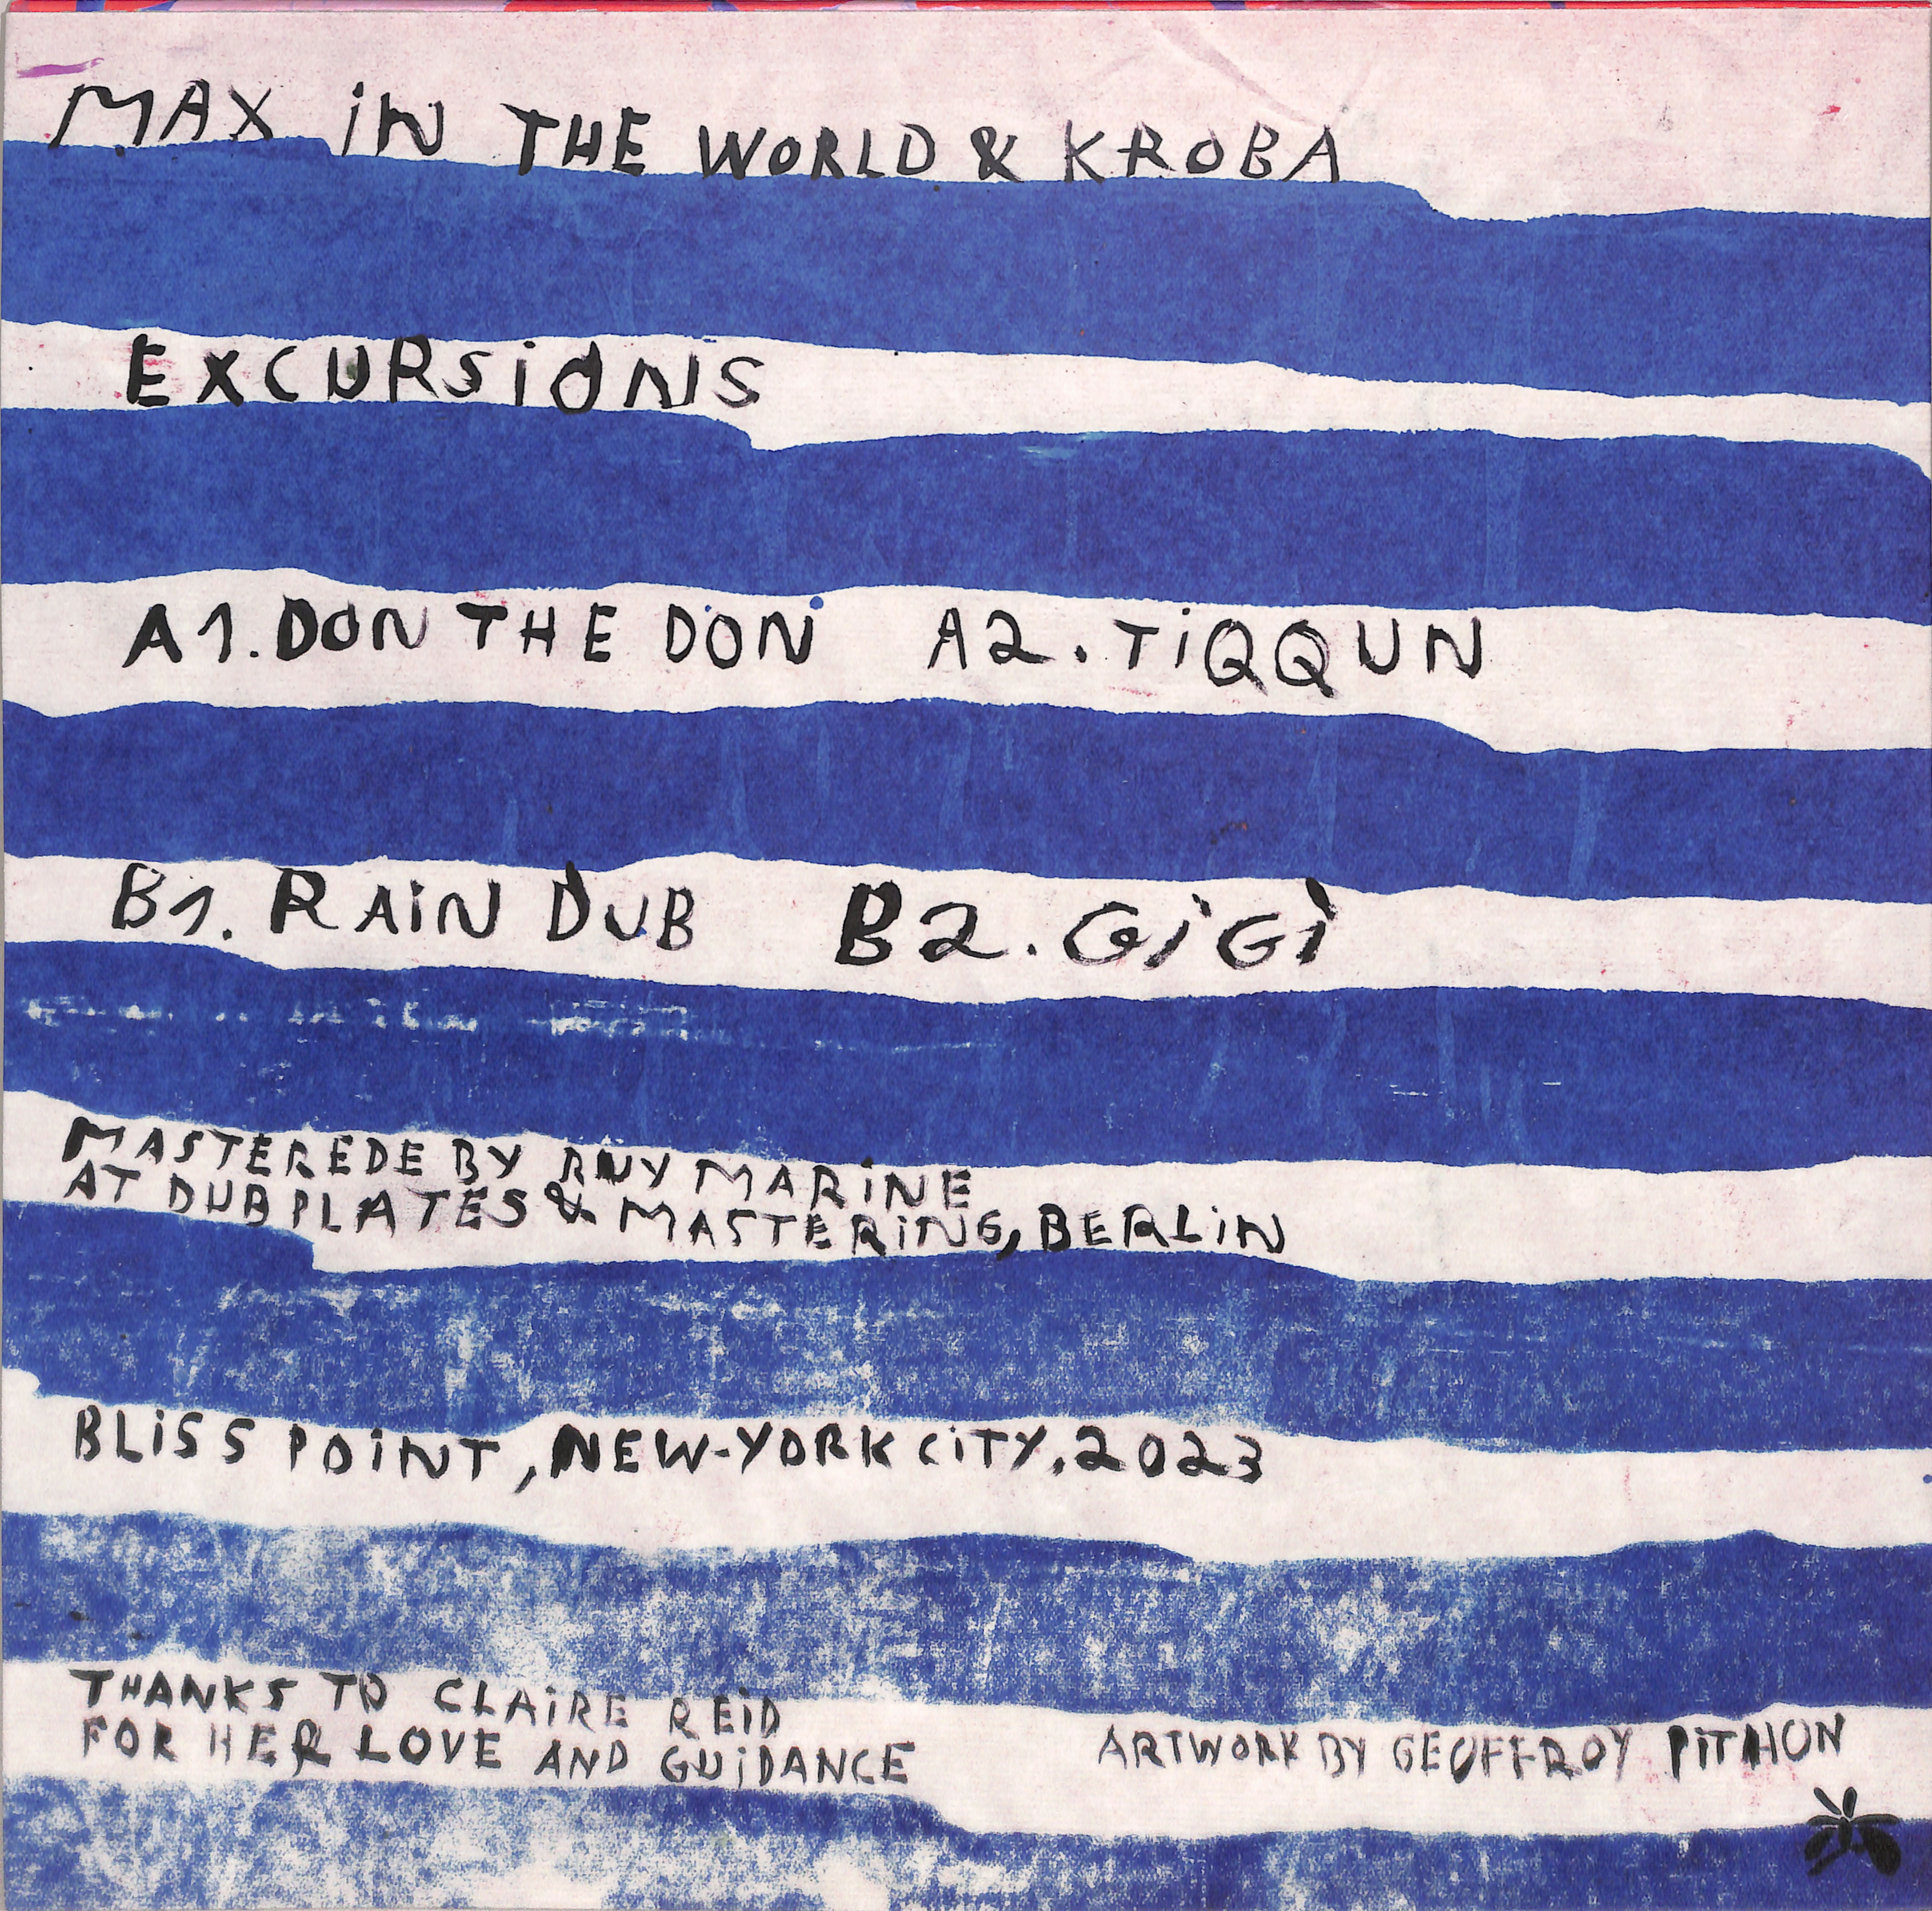 MAX iN THE WORLD & KROBA
EXCURSiONS
A1. DON THE DON A2. TiQQUN
B1. RAiN DUB B2. GiGi
MASTEREDE BY RUY MARiNE
AT DUBPLATES & MASTERiNG, BERLiN
BLiSS POiNT, NEW-YORK CiTY, 2023
THANKS TO CLAiRE REiD
FOR HER LOVE AND GUiDANCE
ARTWORK BY GEOFFROY PiTHON